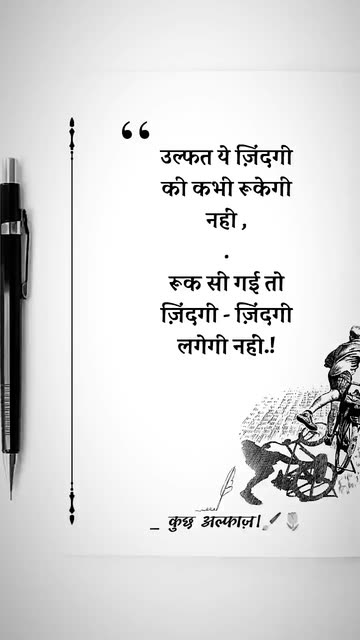 “
उल्फत ये ज़िंदगी
की कभी रूकेगी
नहीं ,
.
रूक सी गई तो
ज़िंदगी - ज़िंदगी
लगेगी नहीं.!
_ कुछ अल्फाज़।